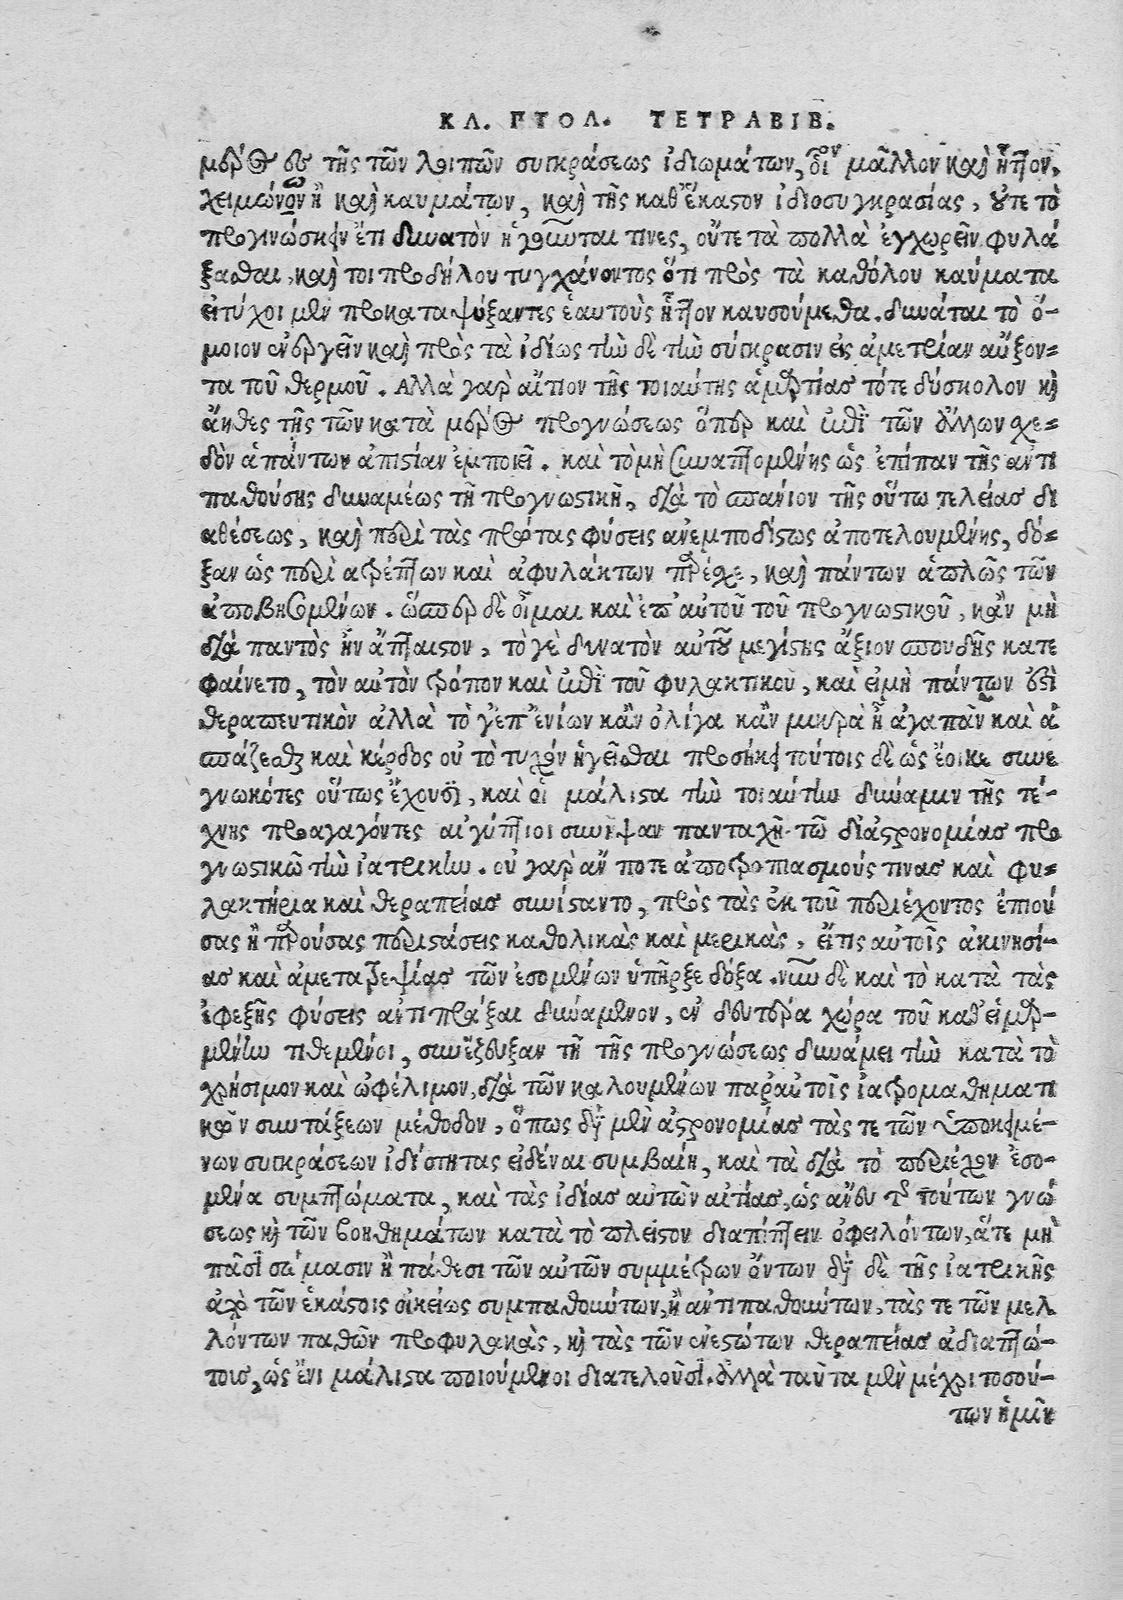 ΚΛ. ΠΤΟΛ. ΤΕΤΡΑΒΙΒ.
μέρος ἐπὶ τῆς τῶν λοιπῶν συγκράσεως ἰδιωμάτων, οἷον μᾶλλον καὶ ἧττον,
χειμώνων ἢ καὶ καυμάτων, καὶ τῆς καθ' ἕκαστον ἰδιοσυγκρασίας, οὔτε τὸ
προγινώσκειν ἔτι δυνατὸν ἡγοῦνται τινες, οὔτε τὰ πολλὰ ἐγχωρεῖν φυλά
ξασθαι, καὶ τοι προδήλου τυγχάνοντος ὅτι πρὸς τὰ καθόλου καύματα
εἰ τύχοι μὲν προκαταψύξαντες ἑαυτοὺς ἧττον καυσούμεθα. δυνάται τὸ ὅ-
μοιον ἐνεργεῖν καὶ πρὸς τὰ ἰδίως τὴν δὲ τὴν σύγκρασιν εἰς ἀμετρίαν αὔξον-
τα τοῦ θερμοῦ. Αλλὰ γὰρ αἴτιον τῆς τοιαύτης ἁμαρτίας τότε δύσκολον καὶ
ἄηθες τῆς τῶν κατὰ μέρος προγνώσεως ὅπερ καὶ ἐπὶ τῶν ἄλλων σχε-
δὸν ἁπάντων ἀπιστίαν ἐμποιεῖ. καὶ τὸ μὴ συναπτομένης ὡς ἐπίπαν τῆς ἀντι
παθούσης δυναμέως τῇ προγνωστικῇ, διὰ τὸ σπανίον τῆς οὕτω τελείας δι
αθέσεως, καὶ περὶ τὰς πρώτας φύσεις ἀνεμποδίστως ἀποτελουμένης, δό-
ξαν ὡς περὶ ἀτρέπτων καὶ ἀφυλάκτων παρέσχε, καὶ πάντων ἁπλῶς τῶν
ἀποβησομένων. ὥσπερ δὲ οἶμαι καὶ ἐπ' αὐτοῦ τοῦ προγνωστικοῦ, κᾂν μὴ
διὰ παντὸς ἦν ἄπταιστον, τό γε δυνατὸν αὐτοῦ μεγίστης ἄξιον σπουδῆς κατε
φαίνετο, τὸν αὐτὸν τρόπον καὶ ἐπὶ τοῦ φυλακτικοῦ, καὶ εἰ μὴ πάντων ἐστὶ
θεραπευτικὸν ἀλλὰ τὸ γ' ἐπ' ἐνίων κᾂν ὀλίγα κᾂν μικρὰ ᾖ ἀγαπᾶν καὶ ἀ
σπάζεσθαι καὶ κέρδος οὐ τὸ τυχὸν ἡγεῖσθαι προσήκει τούτοις δὲ ὡς ἔοικε συνε
γνωκότες οὕτως ἔχουσι, καὶ οἱ μάλιστα τὴν τοιαύτην δύναμιν τῆς τέ-
χνης προαγαγόντες αἰγύπτιοι συνῆψαν πανταχῇ τῷ δι' ἀστρονομίας προ
γνωστικῷ τὴν ἰατρικὴν. οὐ γὰρ ἄν ποτε ἀποτροπιασμούς τινας καὶ φυ-
λακτήρια καὶ θεραπείας συνίσταντο, πρὸς τὰς ἐκ τοῦ περιέχοντος ἐπιού
σας ἢ παρούσας περιστάσεις καθολικὰς καὶ μερικὰς, εἴ τις αὐτοῖς ἀκινησί-
ας καὶ ἀμετατρεψίας τῶν ἐσομένων ὑπῆρξε δόξα. νῦν δὲ καὶ τὸ κατὰ τὰς
ἐφεξῆς φύσεις ἀντιπράξαι δυνάμενον, ἐν δευτέρα χώρα τοῦ καθ' εἱμαρ-
μένην τιθεμένοι, συνέζευξαν τῇ τῆς προγνώσεως δυνάμει τὴν κατὰ τὸ
χρήσιμον καὶ ὠφέλιμον, διὰ τῶν καλουμένων παρ' αὐτοῖς ἰατρομαθηματι
κῶν συντάξεων μέθοδον, ὅπως διὰ μὲν ἀστρονομίας τάς τε τῶν ὑποκειμέ-
νων συγκράσεων ἰδιότητας εἰδέναι συμβαίη, καὶ τὰ διὰ τὸ περιέχον ἐσο-
μένα συμπτώματα, καὶ τὰς ἰδίας αὐτῶν αἰτίας, ὡς ἄνευ τῆς τούτων γνώ
σεως καὶ τῶν βοηθημάτων κατὰ τὸ πλεῖστον διαπίπτειν ὀφειλόντων, ἅτε μὴ
πᾶσι σώμασιν ἢ πάθεσι τῶν αὐτῶν συμμέτρων ὄντων διὰ δὲ τῆς ἰατρικῆς
ἀπὸ τῶν ἑκάστοις οἰκείως συμπαθούντων, ἢ ἀντιπαθούντων, τάς τε τῶν μελ
λόντων παθῶν προφυλακὰς, καὶ τὰς τῶν ἐνεστώτων θεραπείας ἀδιαπτώ-
τους, ὡς ἔνι μάλιστα ποιούμενοι διατελοῦσι. ἀλλὰ ταῦτα μὲν μέχρι τοσού-
των ἡμῖν